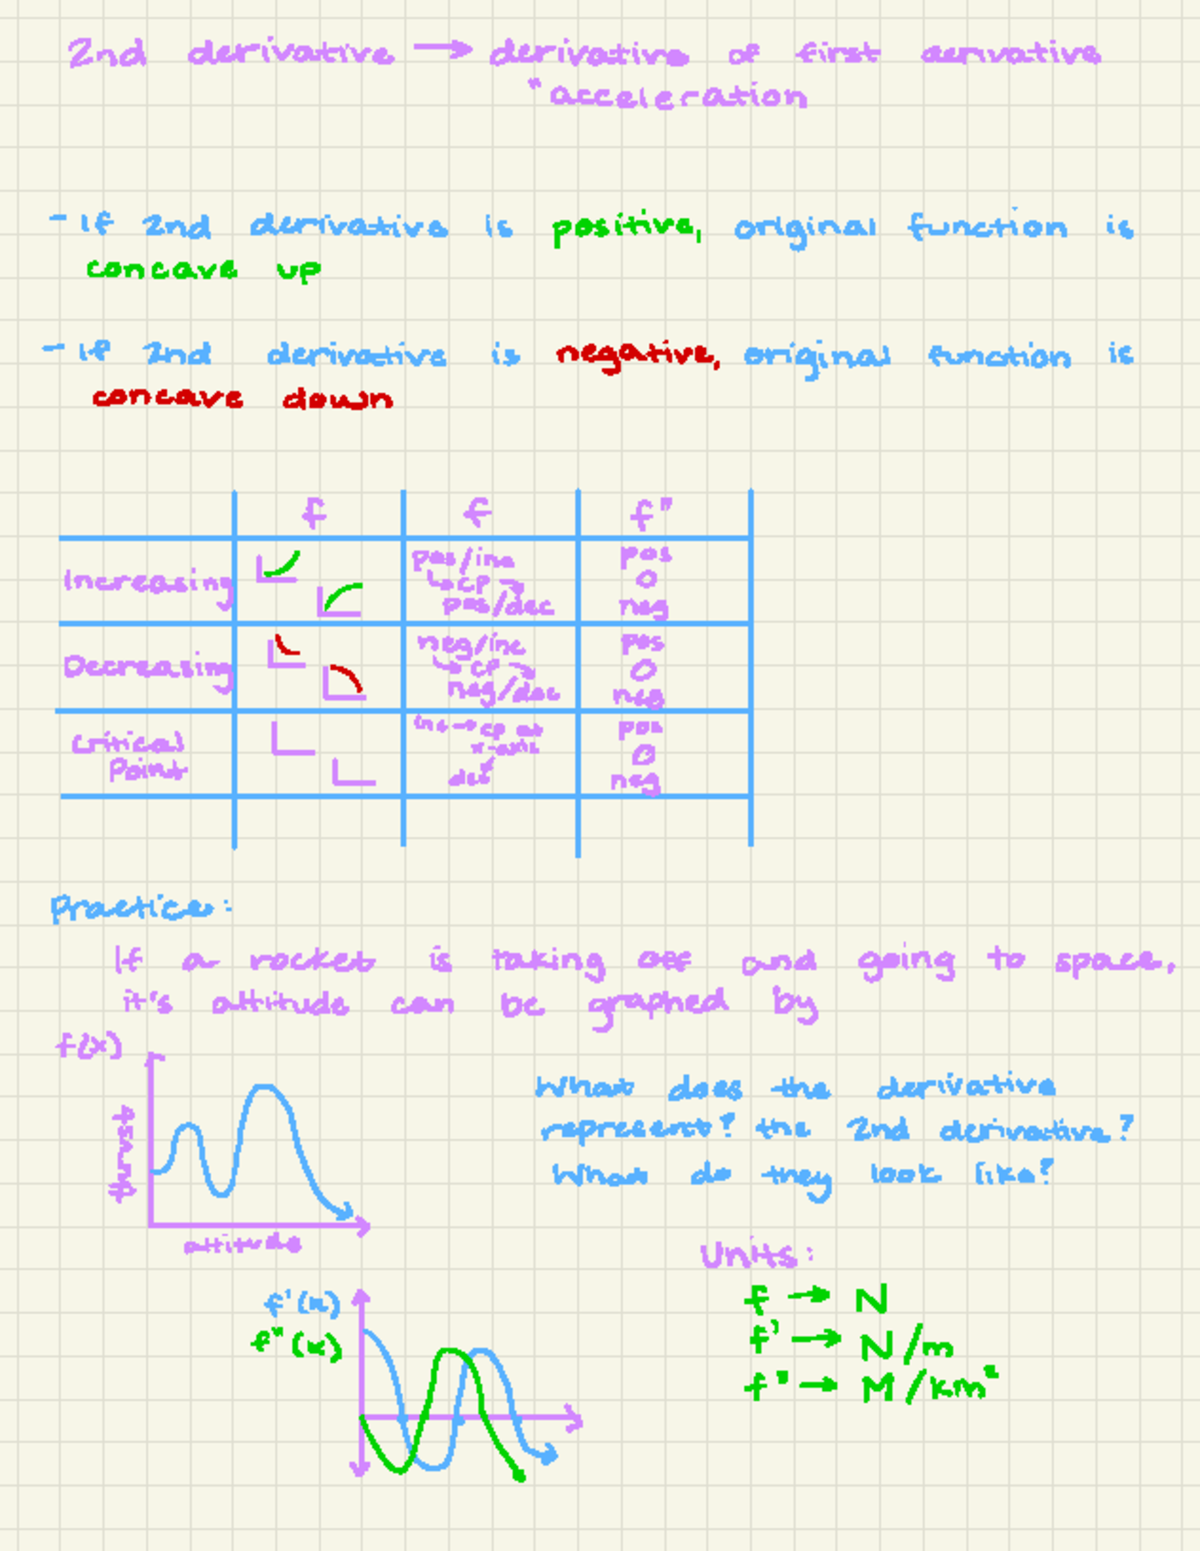 2nd derivative → derivative of first derivative
"acceleration
- If 2nd derivative is positive, original function is
concave up
- If 2nd derivative is negative, original function is
concave down
f f f"
Increasing pos/inc pos
↳ cp ↴ 0
pos/dec neg
Decreasing neg/inc pos
↳ cp ↴ 0
neg/dec neg
Critical inc → cp at pos
Point x-axis 0
dec neg
Practice:
If a rocket is taking off and going to space,
it's altitude can be graphed by
f(x)
thrust
altitude
What does the derivative
represent? the 2nd derivative?
What do they look like?
Units:
f → N
f' → N/m
f" → M/km²
f'(x)
f"(x)